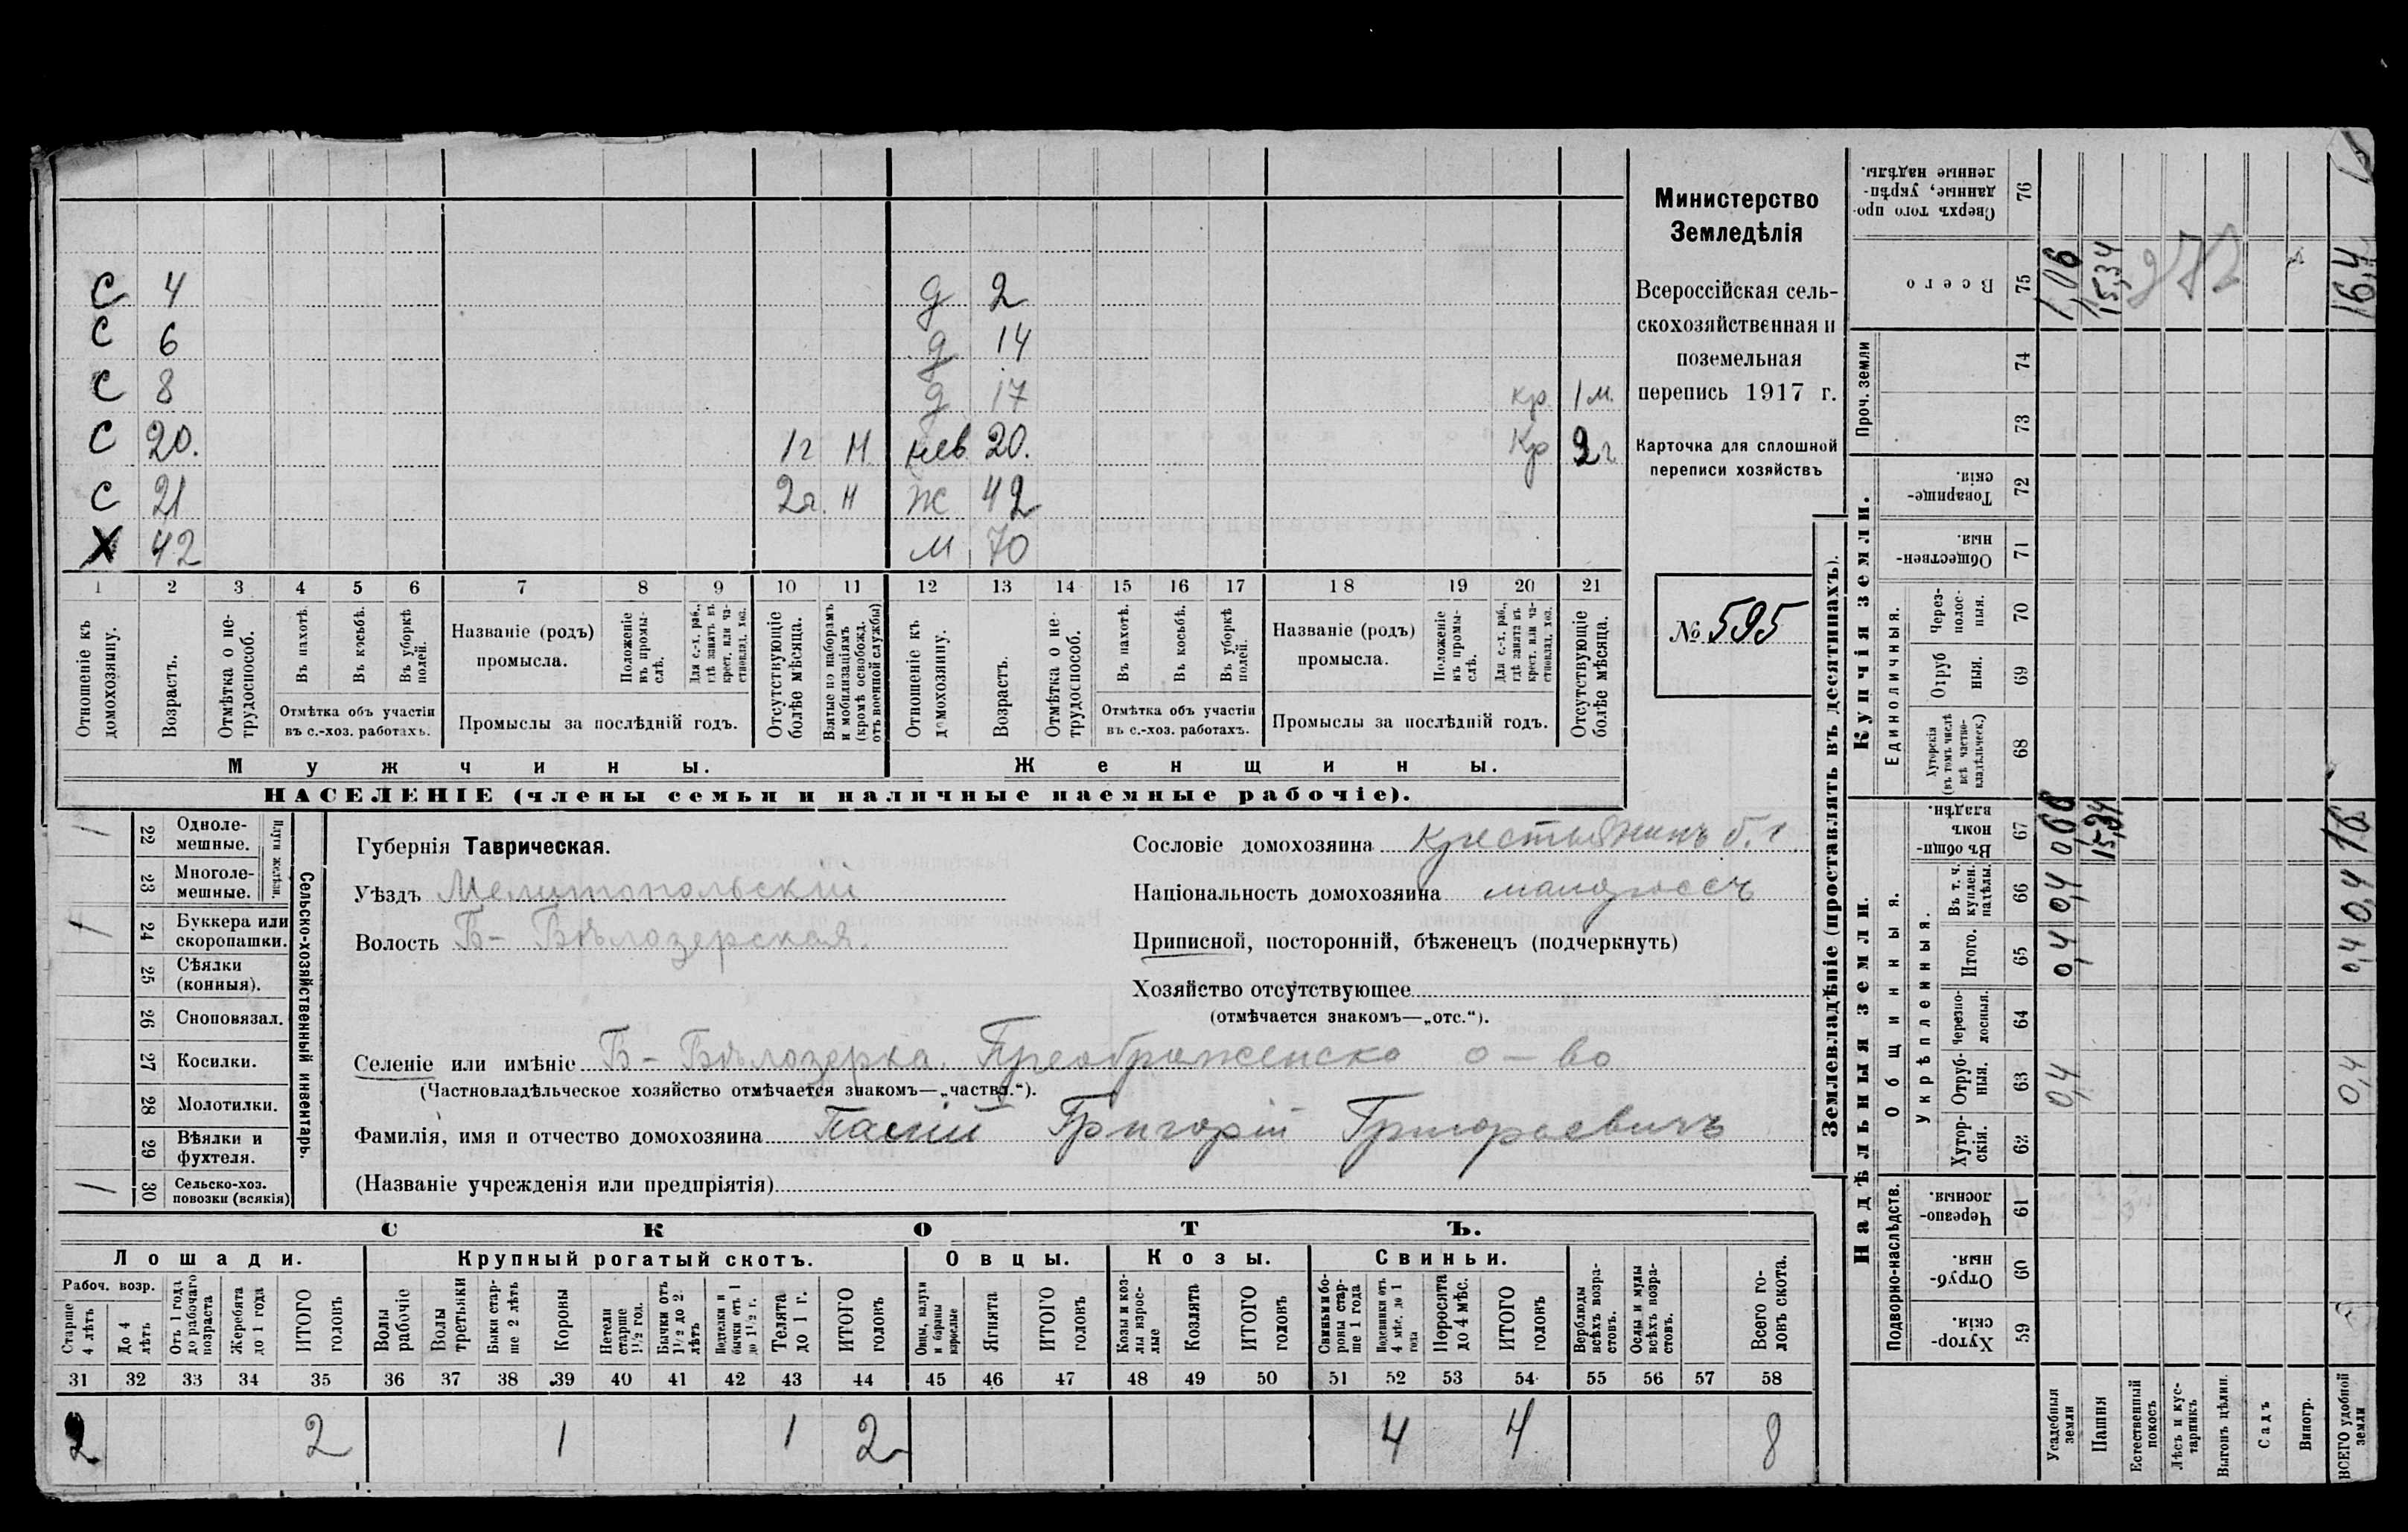 С 4 д 2
С 6 д 14
С 8 д 17 кр. 1 м.
С 20. 1 г Н нев 20. Кр 2 г
С 21 2 г. Н Ж 42
Х 42 М. 70
1 2 3 4 5 6 7 8 9 10 11 12 13 14 15 16 17 18 19 20 21
Отношеніе къ домохозяину.
Возрастъ.
Отмѣтка о нетрудоспособ.
Въ пахотѣ.
Въ косьбѣ.
Въ уборкѣ полей.
Отмѣтка объ участіи
въ с.-хоз. работахъ.
Названіе (родъ)
промысла.
Положеніе въ промыслѣ.
Для с.-х. раб., гдѣ занятъ въ крест. или частновлад. хоз.
Промыслы за послѣдній годъ.
Отсутствующіе болѣе мѣсяца.
Взятые по наборамъ и мобилизаціямъ (кромѣ освобожд. отъ военной службы)
Отношеніе къ домохозяину.
Возрастъ.
Отмѣтка о нетрудоспособ.
Въ пахотѣ.
Въ косьбѣ.
Въ уборкѣ полей.
Отмѣтка объ участіи
въ с.-хоз. работахъ.
Названіе (родъ)
промысла.
Положеніе въ промыслѣ.
Для с.-х. раб., гдѣ занята въ крест. или частновлад. хоз.
Промыслы за послѣдній годъ.
Отсутствующіе болѣе мѣсяца.
Мужчины.
Женщины.
НАСЕЛЕНІЕ (члены семьи и наличные наемные рабочіе).
Министерство
Земледѣлія
Всероссійская сель-
скохозяйственная и
поземельная
перепись 1917 г.
Карточка для сплошной
переписи хозяйствъ
№ 595
Сельско-хозяйственный инвентарь.
Плуги желѣзн.
22 Одноле-
мешные. 1
23 Многоле-
мешные.
24 Буккера или
скоропашки. 1
25 Сѣялки
(конныя).
26 Сноповязал.
27 Косилки.
28 Молотилки.
29 Вѣялки и
фухтеля.
30 Сельско-хоз.
повозки (всякія) 1
Губернія Таврическая.
Уѣздъ Мелитопольскій
Волость Б- Бѣлозерская.
Сословіе домохозяина крестьянинъ б. г.
Національность домохозяина малороссъ
Приписной, посторонній, бѣженецъ (подчеркнуть)
Хозяйство отсутствующее
(отмѣчается знакомъ—„отс.“).
Селеніе или имѣніе Б- Бѣлозерка. Преображенско о-во
(Частновладѣльческое хозяйство отмѣчается знакомъ—„частвл.“).
Фамилія, имя и отчество домохозяина Паскій Григорій Григорьевичъ
(Названіе учрежденія или предпріятія)
СКОТЪ.
Лошади. Крупный рогатый скотъ. Овцы. Козы. Свиньи.
Рабоч. возр.
Старше 4 лѣтъ
До 4 лѣтъ
Отъ 1 года до рабочаго возраста
Жеребята до 1 года
ИТОГО головъ
Волы рабочіе
Волы третьяки
Быки старше 2 лѣтъ
Коровы
Нетели старше 1½ гол.
Бычки отъ 1½ до 2. лѣтъ
Подтелки и бычки отъ 1 до 1½ г.
Телята до 1 г.
ИТОГО головъ
Овцы, валухи и бараны взрослые
Ягнята
ИТОГО головъ
Козы и козлы взрослые
Козлята
ИТОГО головъ
Свиньи и боровы старше 1 года
Подсвинки отъ 4 мѣс. до 1 года
Поросята до 4 мѣс.
ИТОГО головъ
Верблюды всѣхъ возрастовъ.
Ослы и мулы всѣхъ возрастовъ.
Всего головъ скота.
31 32 33 34 35 36 37 38 39 40 41 42 43 44 45 46 47 48 49 50 51 52 53 54 55 56 57 58
2 2 1 1 2 4 4 8
Землевладѣніе (проставлять въ десятинахъ).
Надѣльныя земли.
Купчія земли.
Проч. земли
Подворно-наслѣдств.
Общинныя.
Укрѣпленныя.
Единоличныя.
59 Хутор-
скія.
60 Отруб-
ныя.
61 Черезпо-
лосныя.
62 Хутор-
скія.
63 Отруб-
ныя. 0,4 0,4
64 Черезпо-
лосныя.
65 Итого. 0,4 0,4
66 Въ т. ч. куплен. надѣлы. 0,4 0,4
67 Въ общин-
номъ
владѣн. 0,66 15,34 16
68 Хуторскія (въ томъ числѣ всѣ частно-владѣльческ.)
69 Отруб
ныя.
70 Через-
полос-
ныя.
71 Обществен-
ныя.
72 Товарище-
скія.
73
74
75 Всего 1,06 15,34 16,4
76 Сверхъ того про-
данные, укрѣп-
ленные надѣлы.
Усадебныя земли
Пашня
Естественный покосъ
Лѣсъ и кустарникъ
Выгонъ цѣлин.
Садъ
Виногр.
ВСЕГО удобной земли